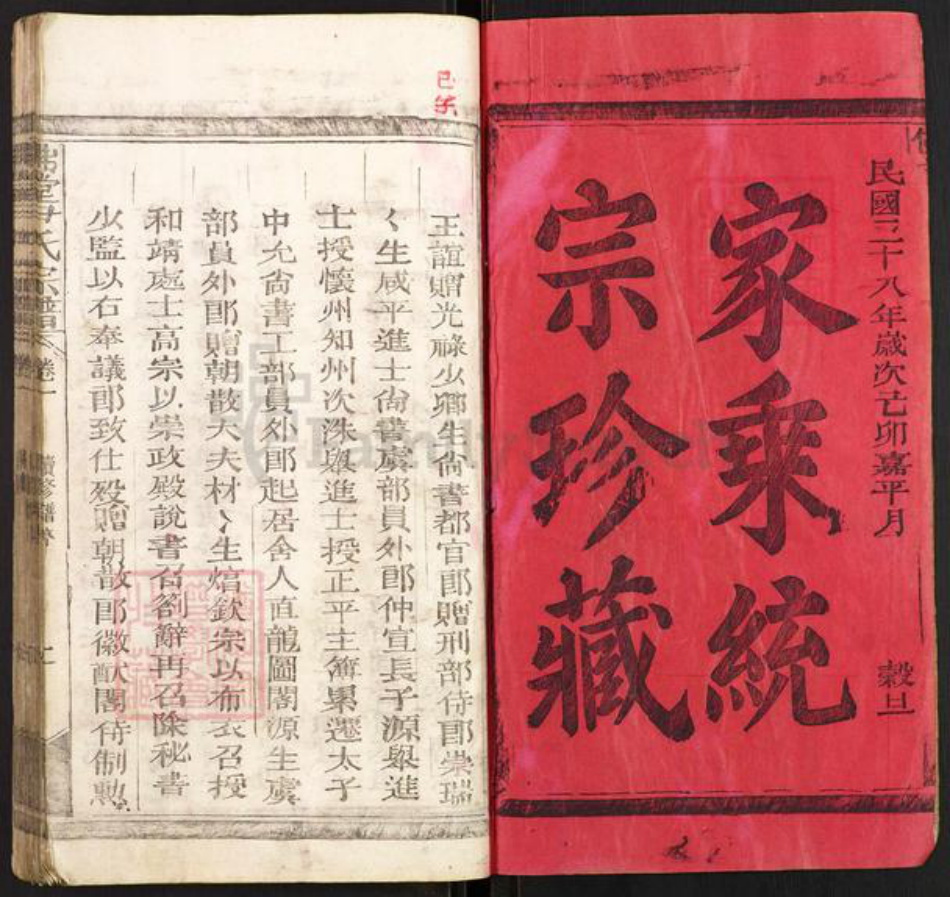 民國三十八年歲次己卯嘉平月 穀旦
家乘統
宗珍藏
王誼贈光祿少卿生尙書都官郎贈刑部侍郎崇瑞
〻生咸平進士尙書虞部員外郎仲宣長子源舉進
士授懷州知州次洙舉進士授正平主簿累遷太子
中允尙書工部員外郎起居舍人直龍圖閣源生虞
部員外郎贈朝散大夫材〻生焞欽宗以布衣召授
和靖處士高宗以崇政殿說書召劄辭再召除秘書
少監以右奉議郎致仕殁贈朝散郎徽猷閣待制勲
堂尹氏宗譜 卷一 續修譜序